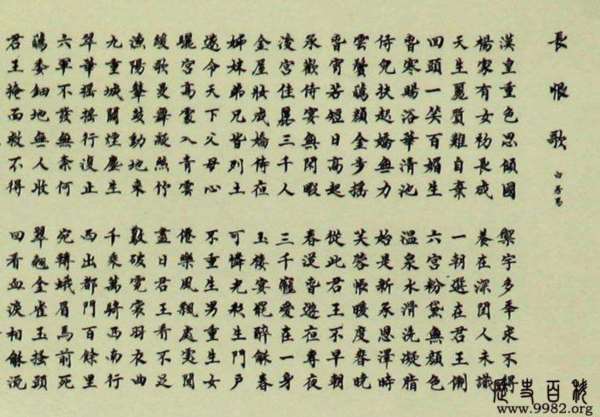 長恨歌
白居易
漢皇重色思傾國 御宇多年求不得
楊家有女初長成 養在深閨人未識
天生麗質難自棄 一朝選在君王側
回頭一笑百媚生 六宮粉黛無顏色
春寒賜浴華清池 溫泉水滑洗凝脂
侍兒扶起嬌無力 始是新承恩澤時
雲鬢花顏金步搖 芙蓉帳暖度春宵
春宵苦短日高起 從此君王不早朝
承歡侍宴無閒暇 春從春遊夜專夜
後宮佳麗三千人 三千寵愛在一身
金屋妝成嬌侍夜 玉樓宴罷醉和春
姊妹弟兄皆列土 可憐光彩生門戶
遂令天下父母心 不重生男重生女
驪宮高處入青雲 仙樂風飄處處聞
緩歌慢舞凝絲竹 盡日君王看不足
漁陽鼙鼓動地來 驚破霓裳羽衣曲
九重城闕煙塵生 千乘萬騎西南行
翠華搖搖行復止 西出都門百餘里
六軍不發無奈何 宛轉蛾眉馬前死
花鈿委地無人收 翠翹金雀玉搔頭
君王掩面救不得 回看血淚相和流
歷史百科
www.9982.org